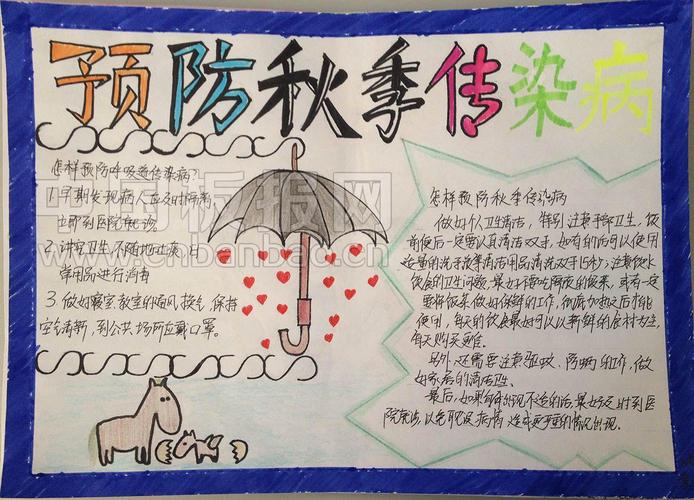 预防秋季传染病
怎样预防呼吸道传染病?
1.早期发现病人应及时隔离
立即到医院就诊
2.讲究卫生不随地吐痰,日
常用品进行消毒
3.做好寝室,教室的通风,换气,保持
空气清新,到公共场所应戴口罩。
怎样预防秋季传染病
做好个人卫生清洁,特别注意手部卫生,饭
前便后一定要认真清洁双手,如有的话可以使用
适量的洗手液等清洁用品清洗双手15秒;注意饮水
饮食的卫生问题,最好不要吃隔夜的饭菜,或者一定
要将饭菜做好保鲜的工作,彻底加热之后才能
使用,每天的饮食最好可以以新鲜的食材为主,
每天购买更佳
另外,还需要注意驱蚊、防蝇的工作,做
好家居的清洁卫生。
最后,如果有出现不适的话,最好及时到医
院就诊,以免耽误病情造成更严重的情况出现。
板报网
cnbanbao.cn